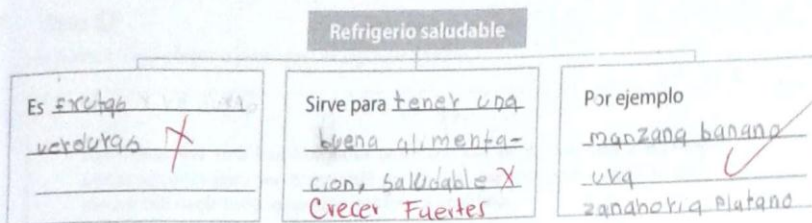 Refrigerio saludable
Es frutas
verduras
Sirve para tener una
buena alimenta-
cion, saludable
Crecer Fuertes
Por ejemplo
manzana banano
uva
zanahoria platano